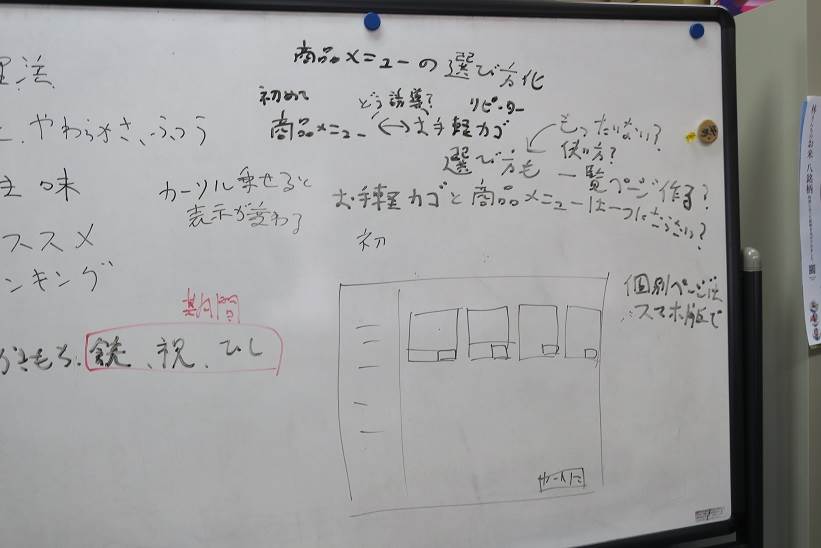 商品メニューの選び方化
初めて どう誘導? リピーター
商品メニュー ←→ お手軽カゴ
選び方も
もったいない?
使い方?
一覧ページ作る?
お手軽カゴと商品メニューは一つにならない?
カーソル乗せると
表示が変わる
理法
やわらかさ、ふつう
味
ススメ
ンキング
初
期間
銭、祝、ひし
個別ページは
スマホ版で
カートに
お米 八銘柄